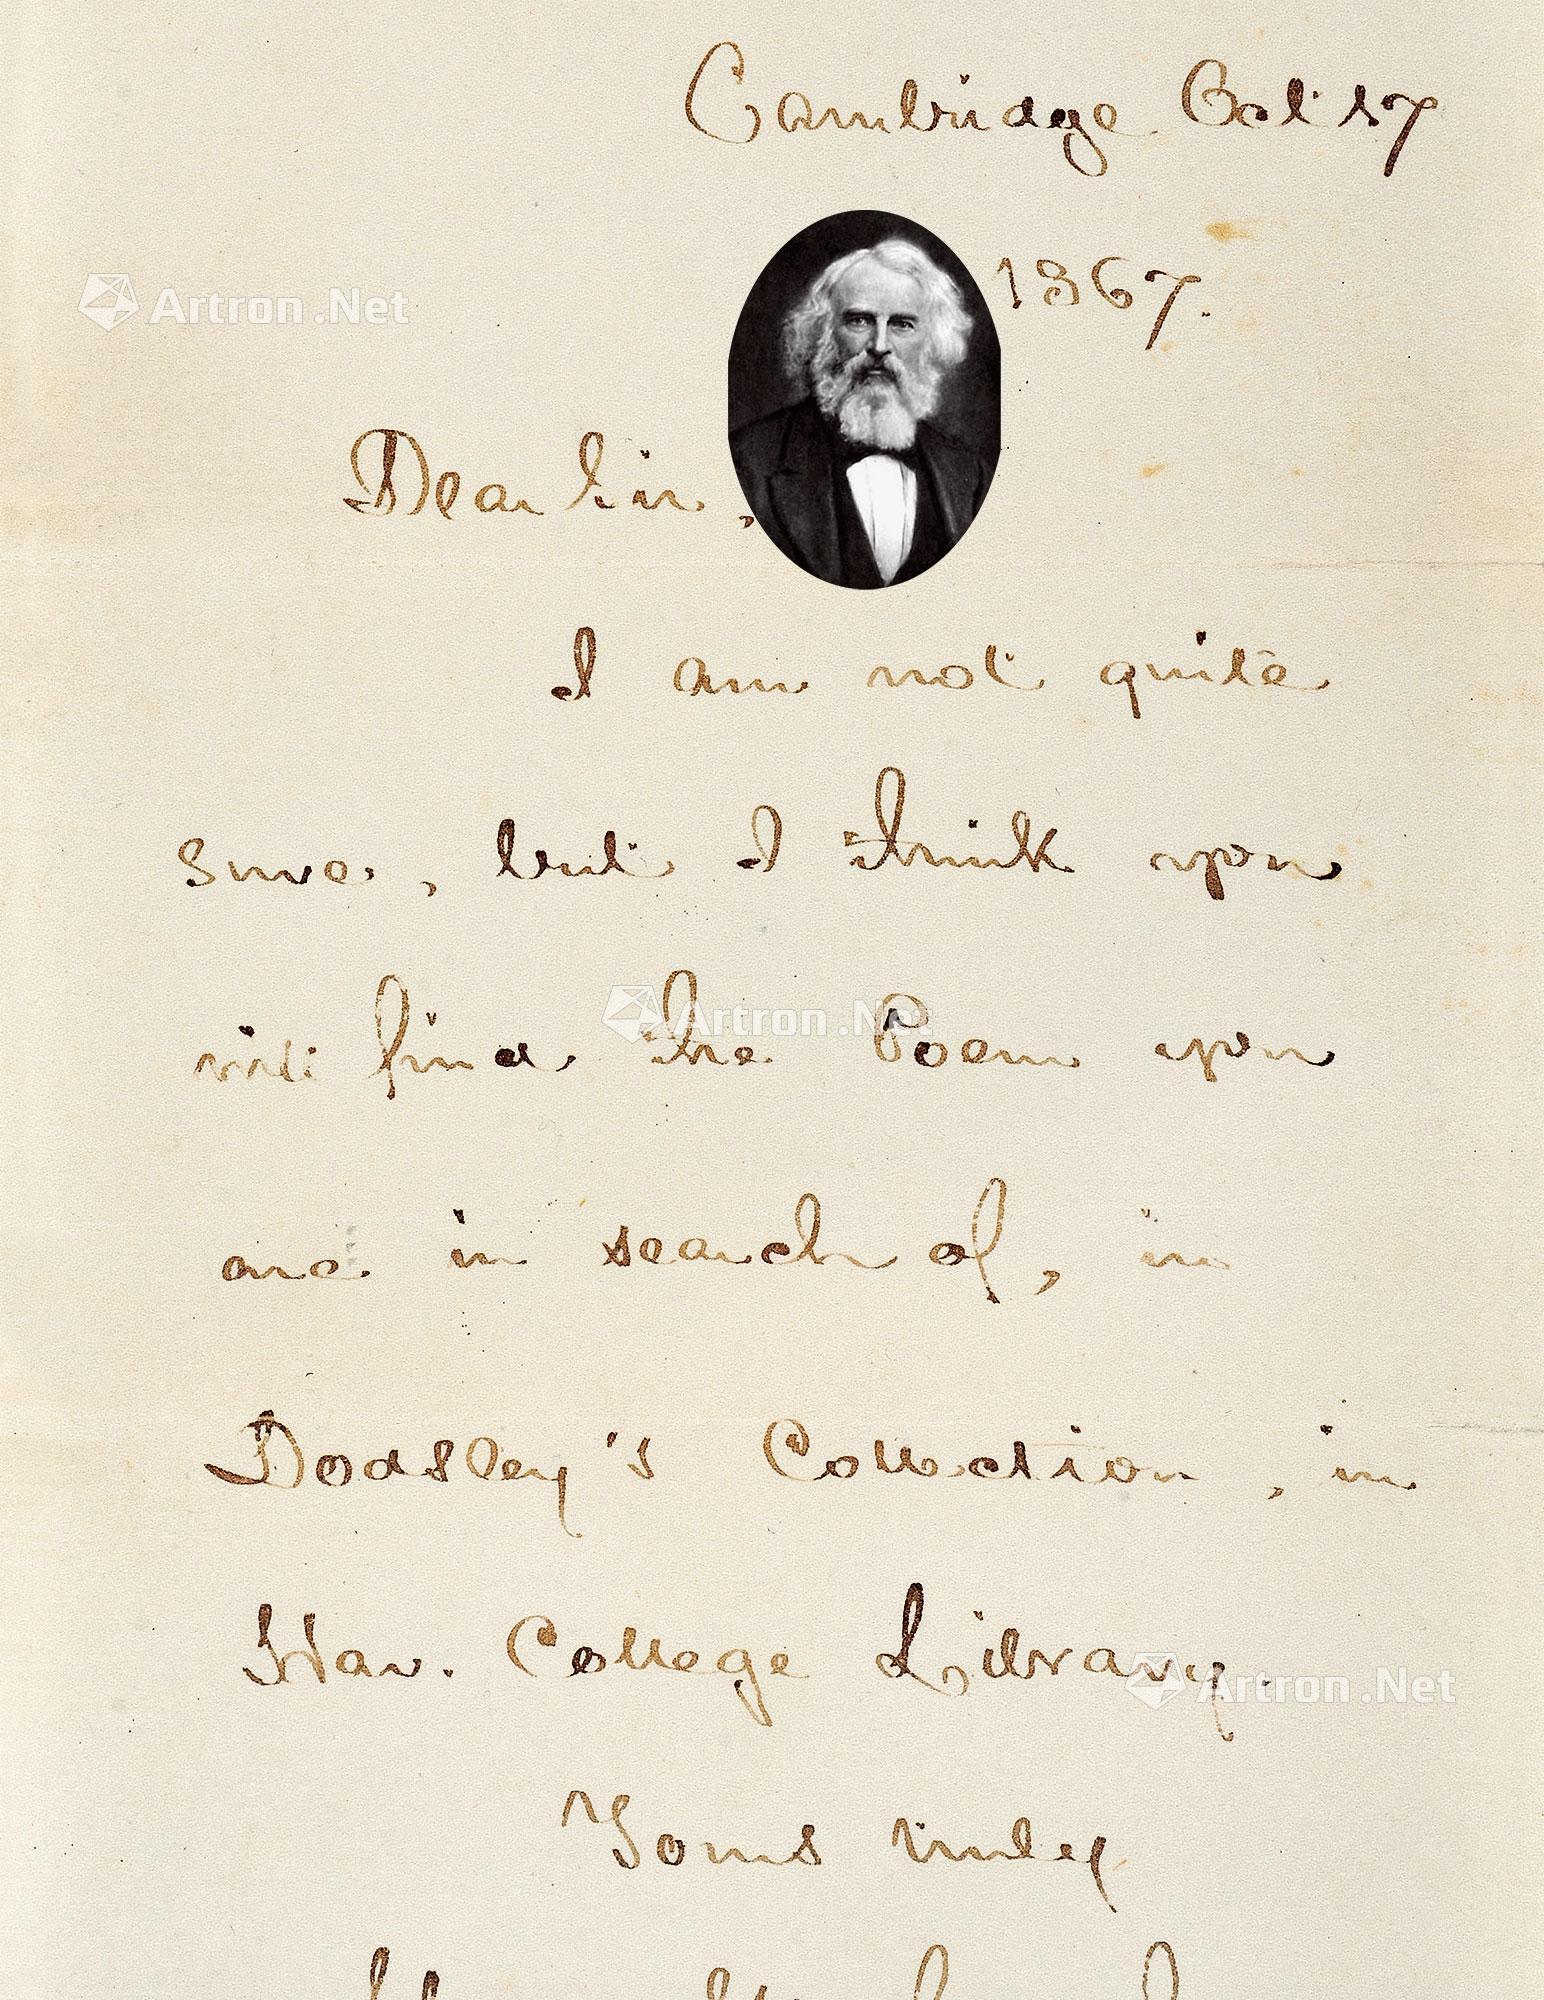 Cambridge Oct
1867.
Artron.Net
Dear Sir,
I am not quite
sure, but I think you
will find the Poem you
Artron.Net
are in search of, in
Dodsley's Collection, in
Har. College Library.
Artron.Net
Yours truly